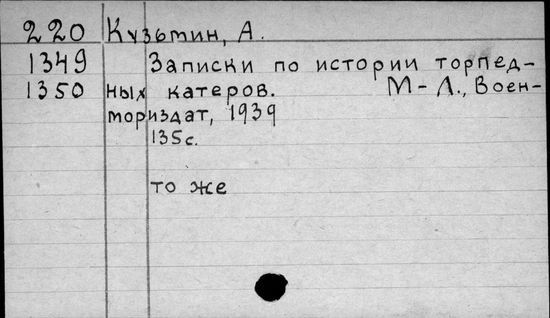 220 Кузьмин, А.
1349 Записки по истории торпед-
1350 ных катеров. М-Л., Воен-
мориздат, 1939
135с.
то же